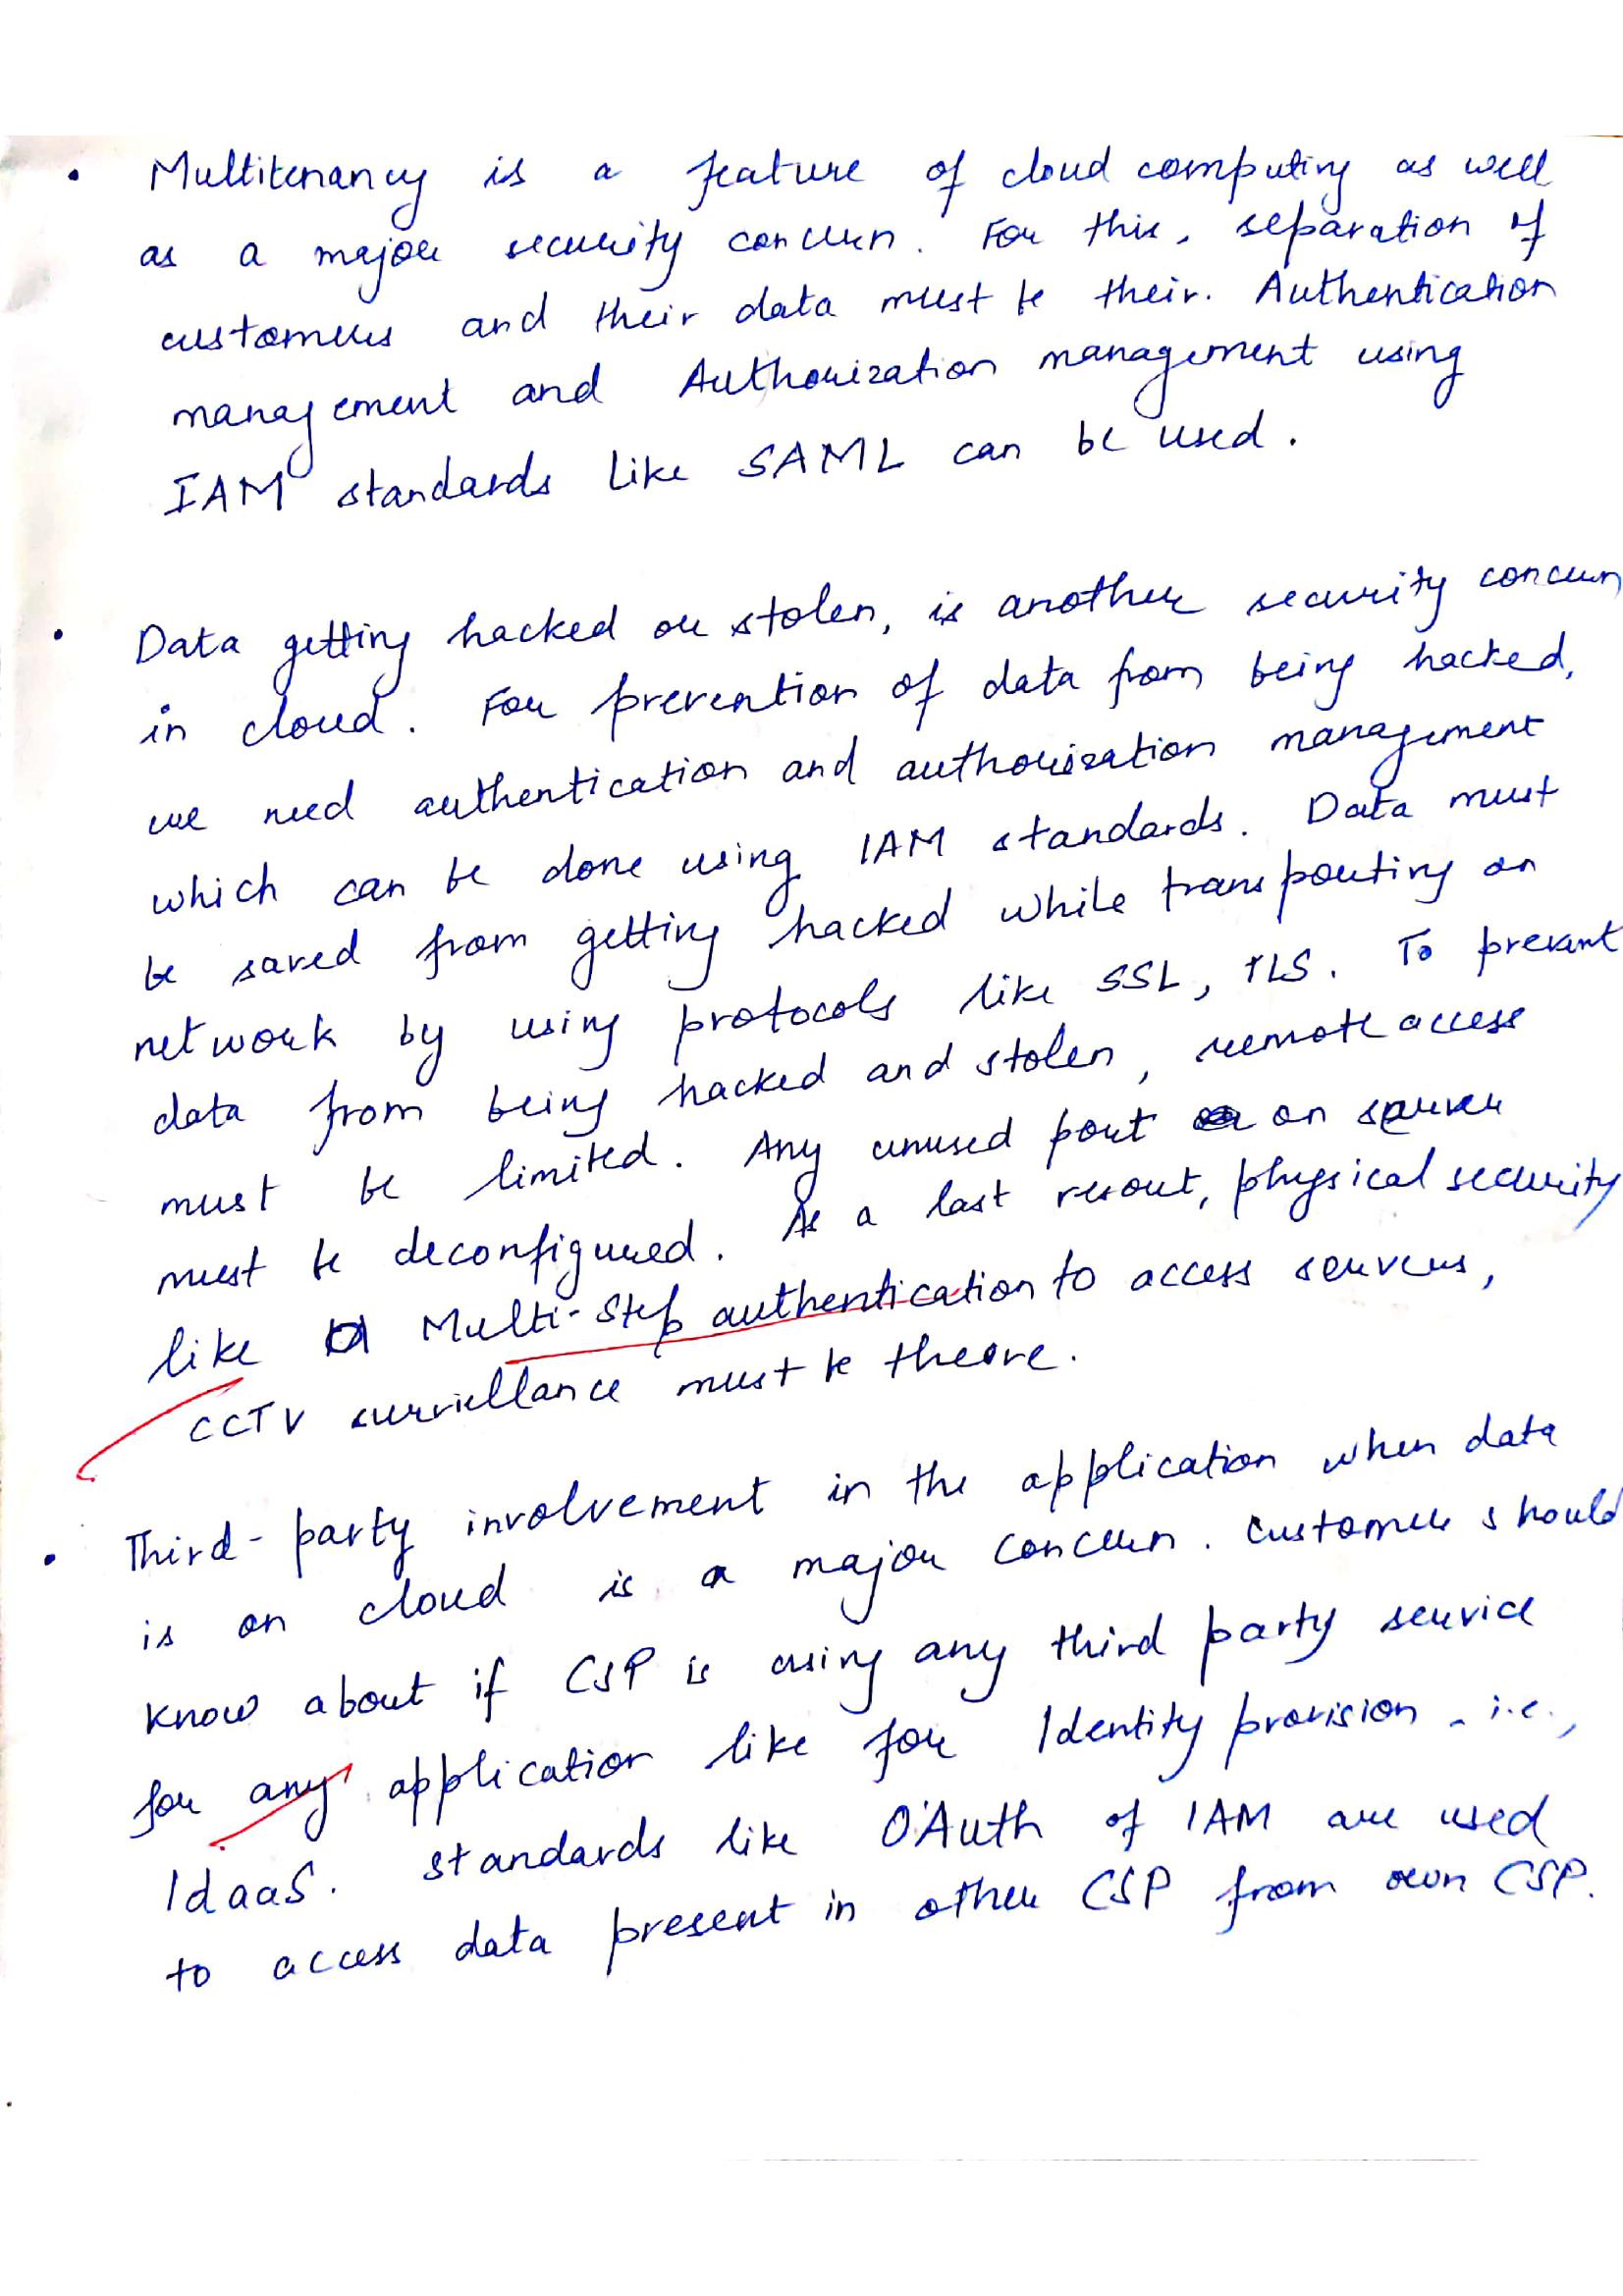 • Multitenancy is a feature of cloud computing as well
as a major security concern. For this, separation of
customers and their data must be their. Authentication
management and Authorization management using
IAM standards like SAML can be used.
• Data getting hacked or stolen, is another security concern
in cloud. For prevention of data from being hacked,
we need authentication and authorization management
which can be done using IAM standards. Data must
be saved from getting hacked while transporting on
network by using protocols like SSL, TLS. To prevant
data from being hacked and stolen, remote access
must be limited. Any unused port on server
must be deconfigured. As a last resort, physical security
like Multi-Step authentication to access servers,
CCTV survillance must be theore.
• Third-party involvement in the application when data
is on cloud is a major concern. Customer should
know about if CSP is using any third party service
for any application like for Identity provision - i.e.,
IdaaS. Standards like O'Auth of IAM are used
to access data present in other CSP from own CSP.